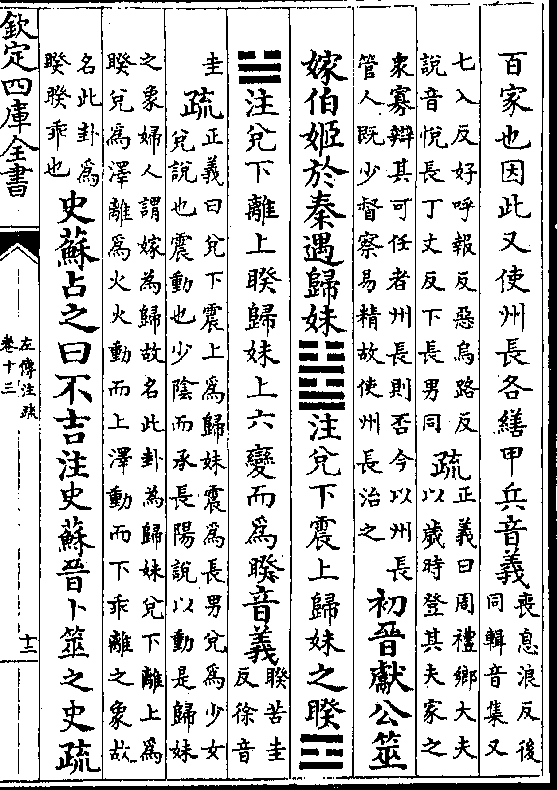 百家也因此又使州長各繕甲兵音義喪息浪反後
同輯音集又
七入反好呼報反惡烏路反
說音悅長丁丈反下長男同
疏正義曰周禮鄉大夫
以歲時登其夫家之
衆寡辯其可任者州長則否今以州長
管人既少督察易精故使州長治之
初晉獻公筮
嫁伯姬於秦遇歸妹䷵注兌下震上歸妹之睽☲
☱注兌下離上睽歸妹上六變而爲睽音義睽苦圭
反徐音
圭
疏正義曰兌下震上爲歸妹震爲長男兌爲少女
兌說也震動也少陰而承長陽說以動是歸妹
之象婦人謂嫁爲歸故名此卦爲歸妹兌下離上爲
睽兌爲澤離爲火火動而上澤動而下乖離之象故
名此卦爲
睽睽乖也
史蘇占之曰不吉注史蘇晉卜筮之史疏
欽定四庫全書
左傳注疏
卷十三
十二